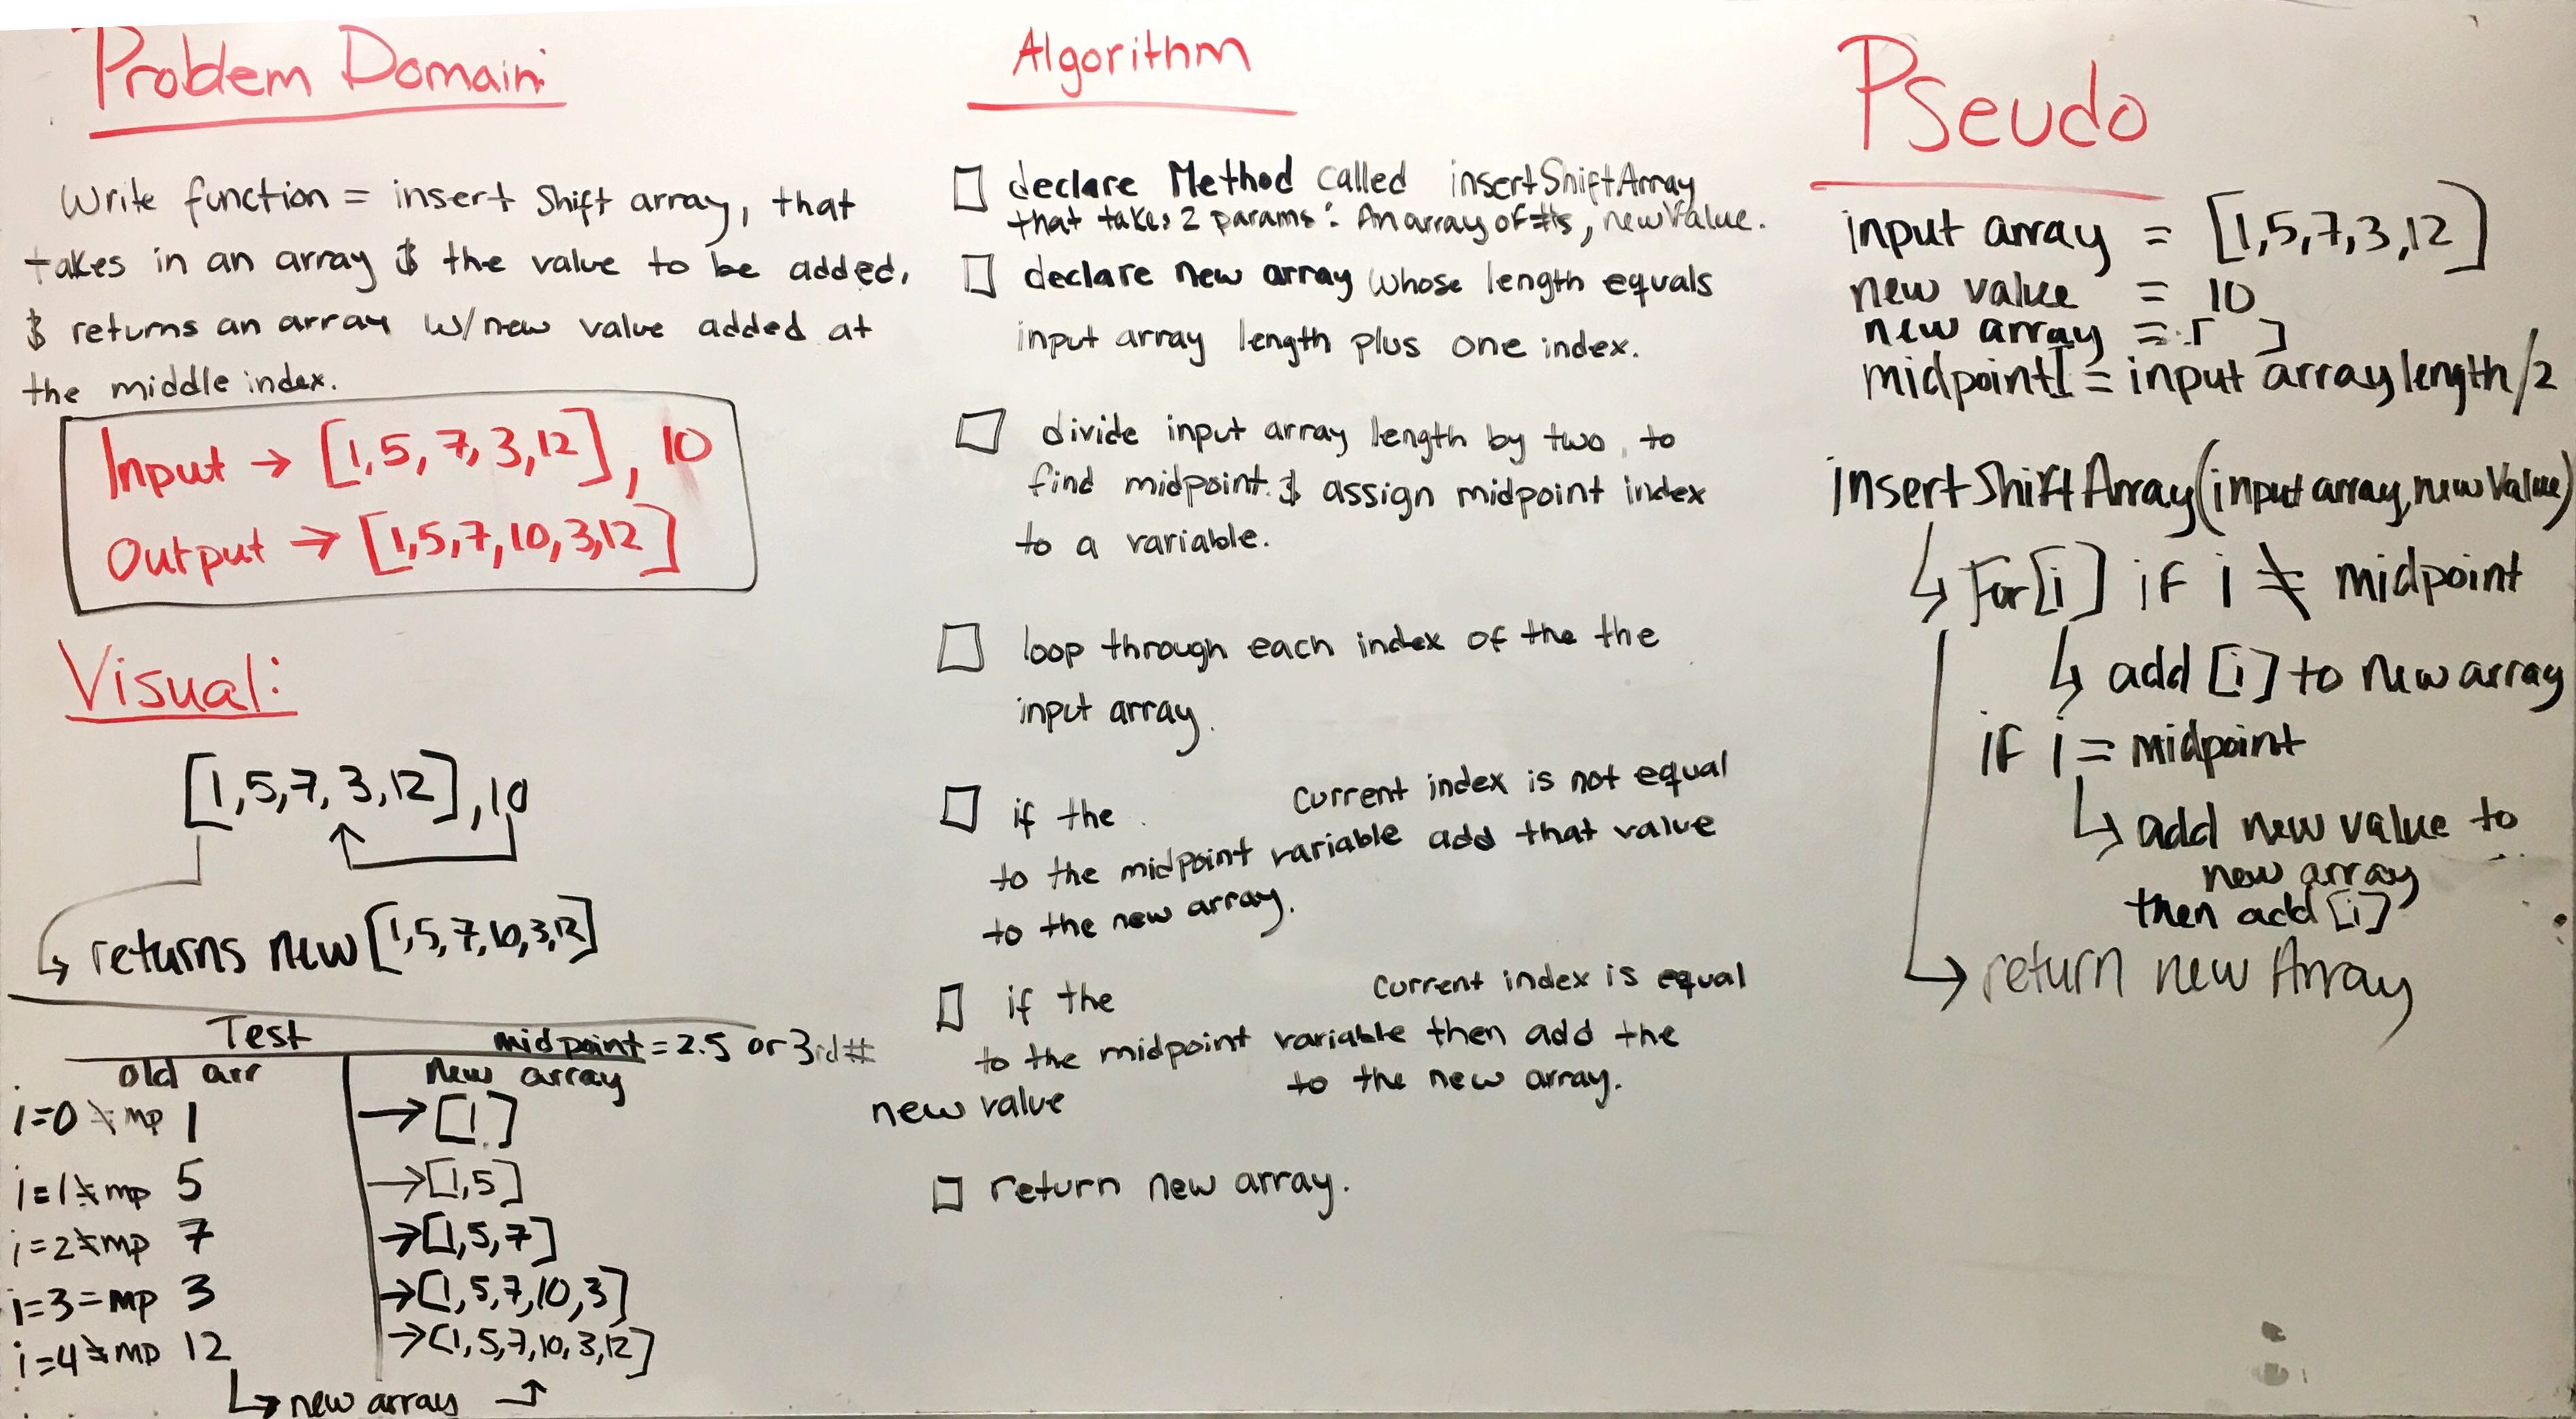 Problem Domain:
Write function = insert Shift array, that
takes in an array & the value to be added,
& returns an array w/new value added at
the middle index.
Input → [1,5,7,3,12], 10
Output → [1,5,7,10,3,12]
Visual:
[1,5,7,3,12],10
returns new [1,5,7,10,3,12]
Test
midpoint = 2.5 or 3id#
old arr
new array
i=0 ≠ mp 1 → [1]
i=1 ≠ mp 5 → [1,5]
i=2 ≠ mp 7 → [1,5,7]
i=3 = mp 3 → [1,5,7,10,3]
i=4 ≠ mp 12 → [1,5,7,10,3,12]
↳ new array
Algorithm
declare Method called insertShiftArray
that takes 2 params: An array of #'s, newValue.
declare new array whose length equals
input array length plus one index.
divide input array length by two, to
find midpoint. & assign midpoint index
to a variable.
loop through each index of the the
input array.
if the current index is not equal
to the midpoint variable add that value
to the new array.
if the current index is equal
to the midpoint variable then add the
new value to the new array.
return new array.
Pseudo
input array = [1,5,7,3,12]
new value = 10
new array = [ ]
midpointI = input array length/2
insertShiftArray(input array, newValue)
↳ For[i] if i ≠ midpoint
↳ add [i] to new array
if i = midpoint
↳ add new value to
new array
then add [i]
→ return new Array